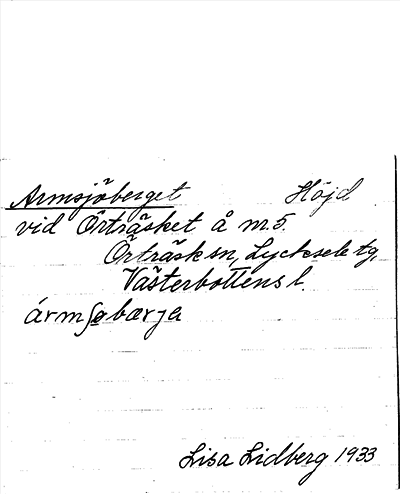 Armsjöberget Höjd
vid Örträsket å m.5.
Örträsk sn, Lycksele tg,
Västerbottens l.
ármʃøbærja
Lisa Lidberg 1933